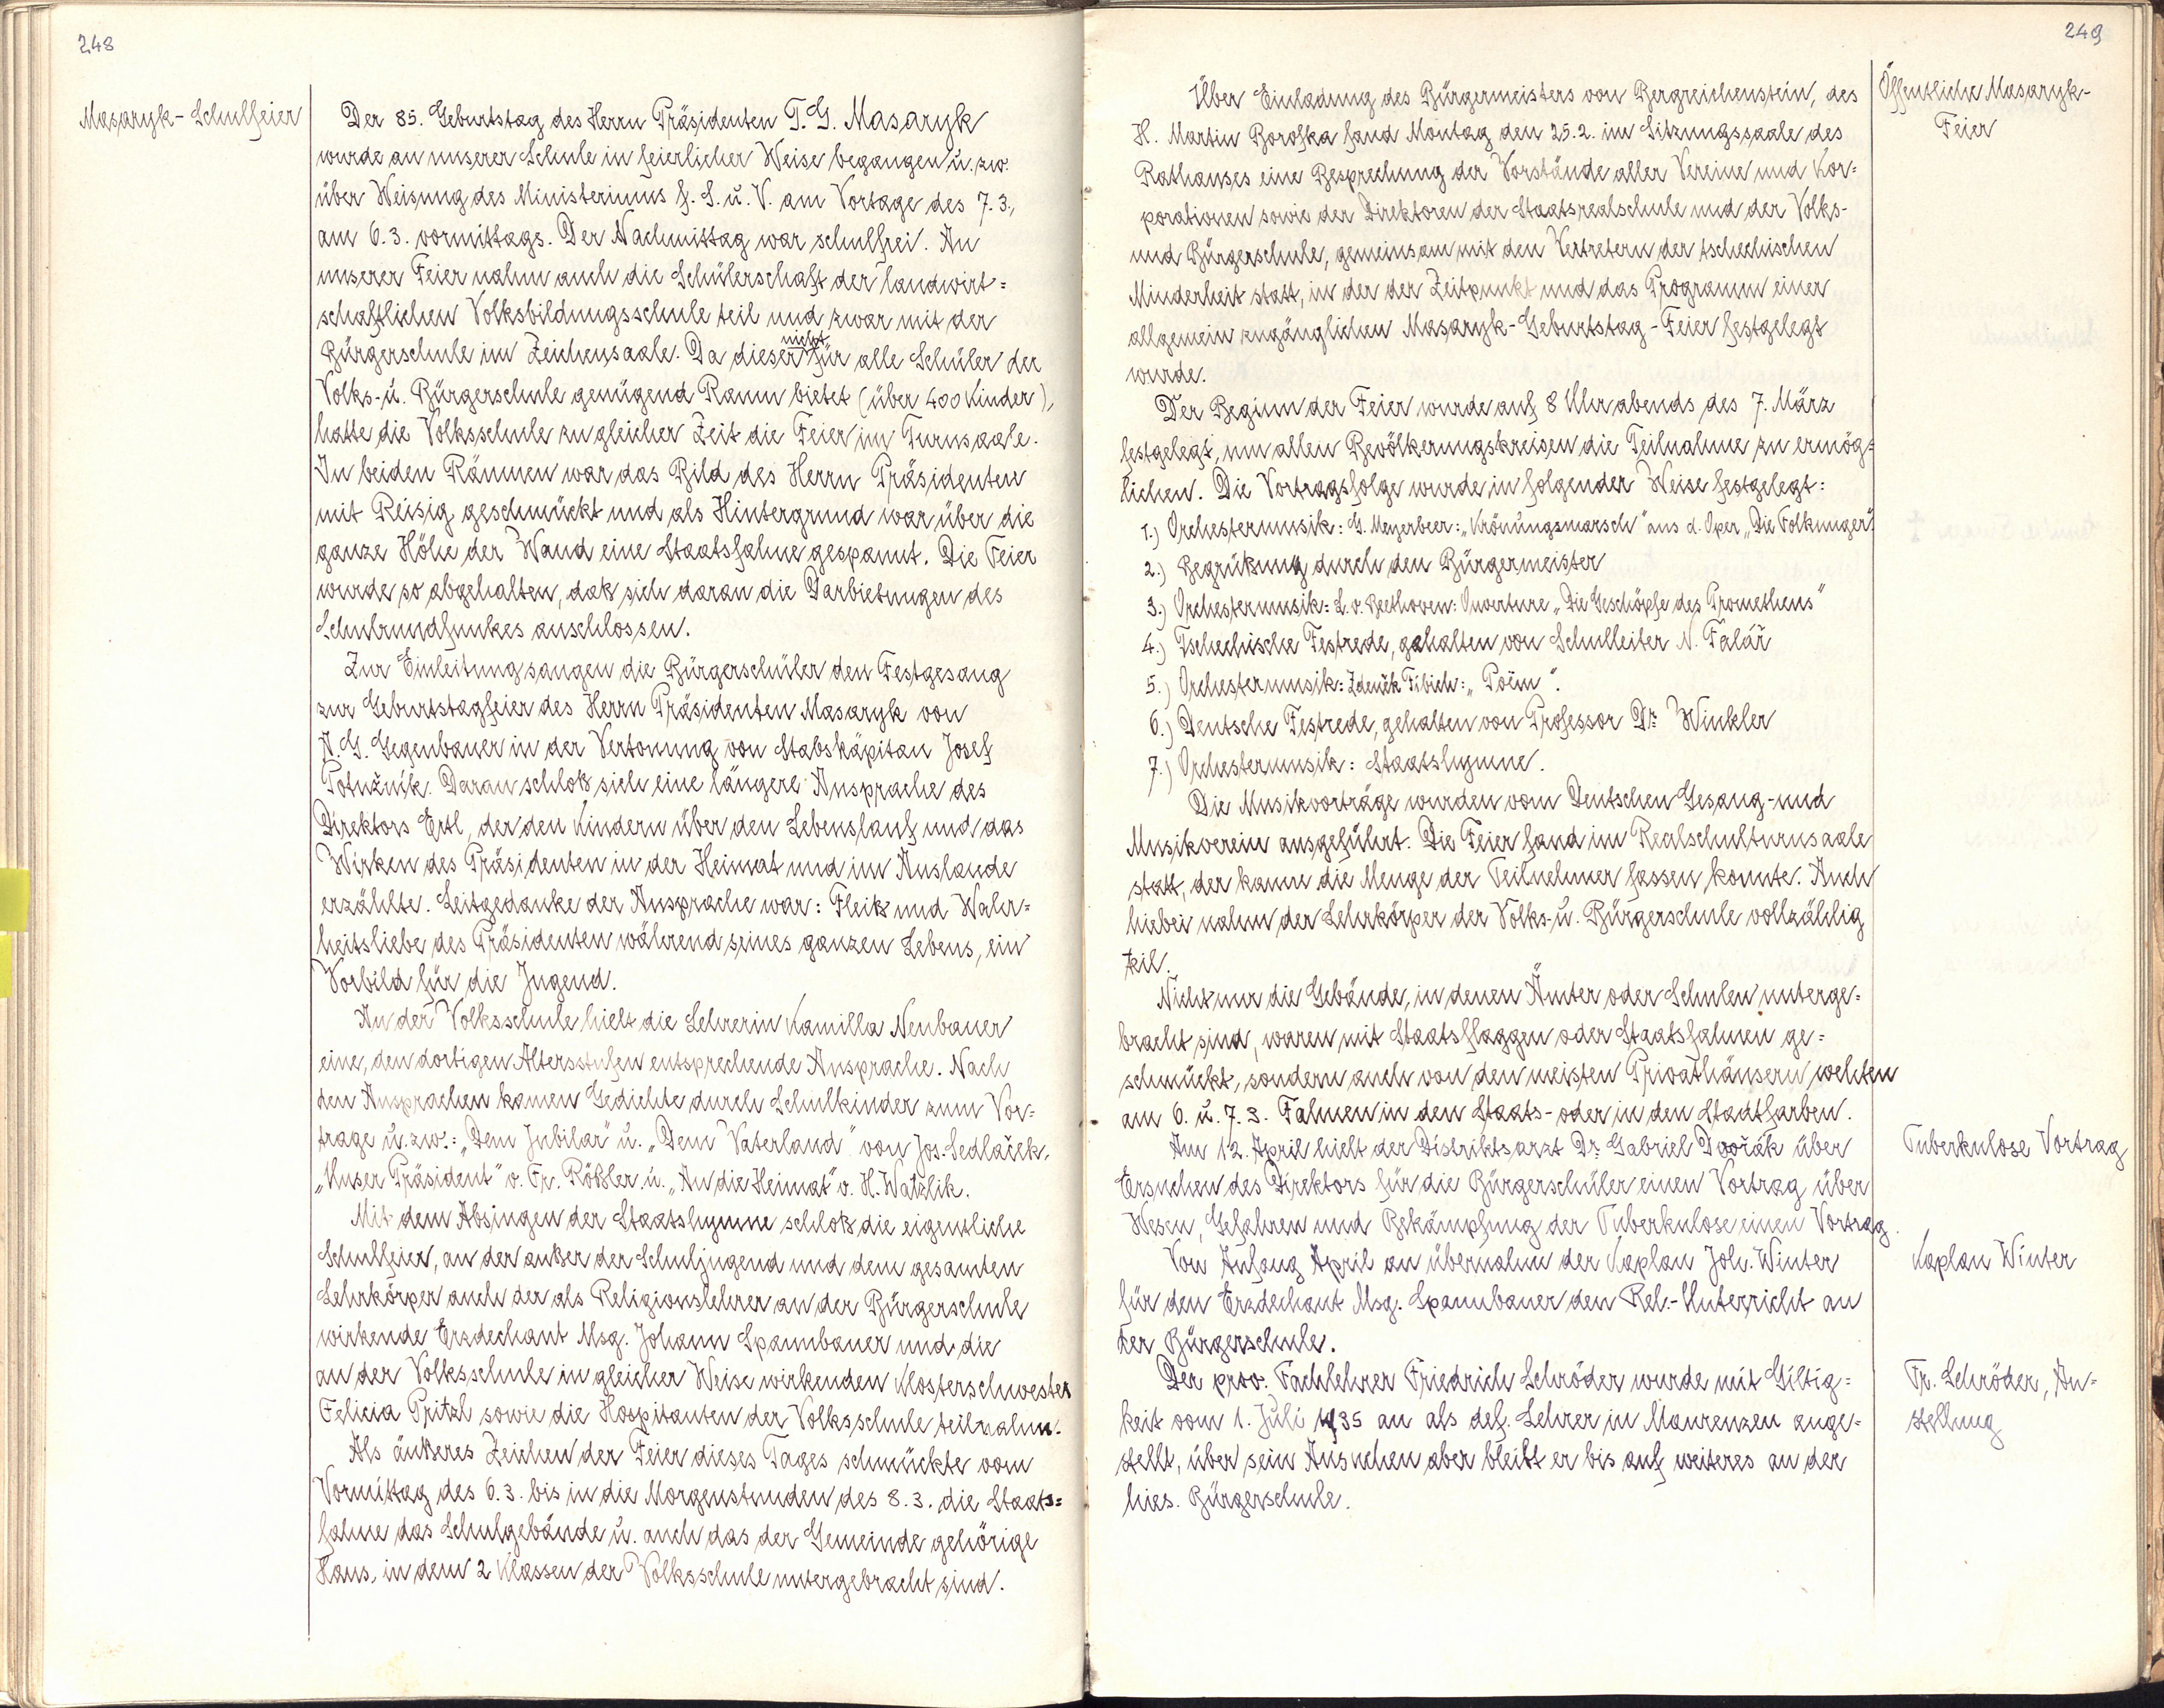 248
Masaryk-Schulfeier
Der 85. Geburtstag des Herrn Präsidenten T. G. Masaryk
wurde an unserer Schule in feierlicher Weise begangen u. zw.
über Weisung des Ministeriums f. S. u. V. am Vortage des 7. 3.,
am 6. 3. vormittags. Der Nachmittag war schulfrei. An
unserer Feier nahm auch die Schülerschaft der landwirt=
schaftlichen Volksbildungsschule teil und zwar mit der
Bürgerschule im Zeichensaale. Da dieser nicht für alle Schüler der
Volks- u. Bürgerschule genügend Raum bietet (über 400 Kinder),
hatte die Volksschule zu gleicher Zeit die Feier im Turnsaale.
In beiden Räumen war das Bild des Herrn Präsidenten
mit Reisig geschmückt und als Hintergrund war über die
ganze Höhe der Wand eine Staatsfahne gespannt. Die Feier
wurde so abgehalten, daß sich daran die Darbietungen des
Schulrundfunkes anschlossen.
Zur Einleitung sangen die Bürgerschüler den Festgesang
zur Geburtstagfeier des Herrn Präsidenten Masaryk von
A. G. Gegenbauer in der Vertonung von Stabskäpitan Josef
Potužník. Daran schloß sich eine längere Ansprache des
Direktors Ertl, der den Kindern über den Lebenslauf und das
Wirken des Präsidenten in der Heimat und im Auslande
erzählte. Leitgedanke der Ansprache war: Fleiß und Wahr=
heitsliebe des Präsidenten während seines ganzen Lebens, ein
Vorbild für die Jugend.
An der Volksschule hielt die Lehrerin Kamilla Neubauer
eine, den dortigen Altersstufen entsprechende Ansprache. Nach
den Ansprachen kamen Gedichte durch Schulkinder zum Vor=
trage u. zw.: „Dem Jubilar" u. „Dem Vaterland" von Jos. Sedlaček,
„Unser Präsident" v. Fr. Rößler u. „An die Heimat" v. H. Watzlik.
Mit dem Absingen der Staatshymne schloß die eigentliche
Schulfeier, an der außer der Schuljugend und dem gesamten
Lehrkörper auch der als Religionslehrer an der Bürgerschule
wirkende Erzdechant Msg. Johann Spannbauer und die
an der Volksschule in gleicher Weise wirkenden Klosterschwester
Felicia Pritzl sowie die Hospitanten der Volksschule teilnahm.
Als äußeres Zeichen der Feier dieses Tages schmückte vom
Vormittag des 6. 3. bis in die Morgenstunden des 8. 3. die Staats=
fahne das Schulgebäude u. auch das der Gemeinde gehörige
Haus, in dem 2 Klassen der Volksschule untergebracht sind.
249
Öffentliche Masaryk-
Feier
Über Einladung des Bürgermeisters von Bergreichenstein, des
H. Martin Borofka fand Montag den 25. 2. im Sitzungssaale des
Rathauses eine Besprechung der Vorstände aller Vereine und Kor=
porationen sowie der Direktoren der Staatsrealschule und der Volks-
und Bürgerschule, gemeinsam mit den Vertretern der tschechischen
Minderheit statt, in der der Zeitpunkt und das Programm einer
allgemein zugänglichen Masaryk-Geburtstag-Feier festgelegt
wurde.
Der Beginn der Feier wurde auf 8 Uhr abends des 7. März
festgelegt, um allen Bevölkerungskreisen die Teilnahme zu ermög=
lichen. Die Vortragsfolge wurde in folgender Weise festgelegt:
1.) Orchestermusik: G. Meyerbeer: „Krönungsmarsch" aus d. Oper „Die Folkunger".
2.) Begrüßung durch den Bürgermeister
3.) Orchestermusik: L. v. Beethoven: Ouverture „Die Geschöpfe des Prometheus"
4.) Tschechische Festrede, gehalten von Schulleiter N. Falář
5.) Orchestermusik: Zdeněk Fibich: „Poëm".
6.) Deutsche Festrede, gehalten von Professor Dr. Winkler
7.) Orchestermusik: Staatshymne.
Die Musikvorträge wurden vom Deutschen Gesang- und
Musikverein ausgeführt. Die Feier fand im Realschulturnsaale
statt, der kaum die Menge der Teilnehmer fassen konnte. Auch
hiebei nahm der Lehrkörper der Volks- u. Bürgerschule vollzählig
teil.
Nicht nur die Gebäude, in denen Ämter oder Schulen unterge=
bracht sind, waren mit Staatsflaggen oder Staatsfahnen ge=
schmückt, sondern auch von den meisten Privathäusern wehten
am 6. u. 7. 3. Fahnen in den Staats- oder in den Stadtfarben.
Am 12. April hielt der Distriktsarzt Dr. Gabriel Dvořák über
Ersuchen des Direktors für die Bürgerschüler einen Vortrag über
Wesen, Gefahren und Bekämpfung der Tuberkulose einen Vortrag.
Tuberkulose Vortrag
Von Anfang April an übernahm der Kaplan Joh. Winter
für den Erzdechant Msg. Spannbauer den Rel.-Unterricht an
der Bürgerschule.
Kaplan Winter
Der prov. Fachlehrer Friedrich Schröder wurde mit Giltig=
keit vom 1. Juli 1935 an als def. Lehrer in Maurenzen ange=
stellt, über sein Ansuchen aber bleibt er bis auf weiteres an der
hies. Bürgerschule.
Fr. Schröder, An=
stellung